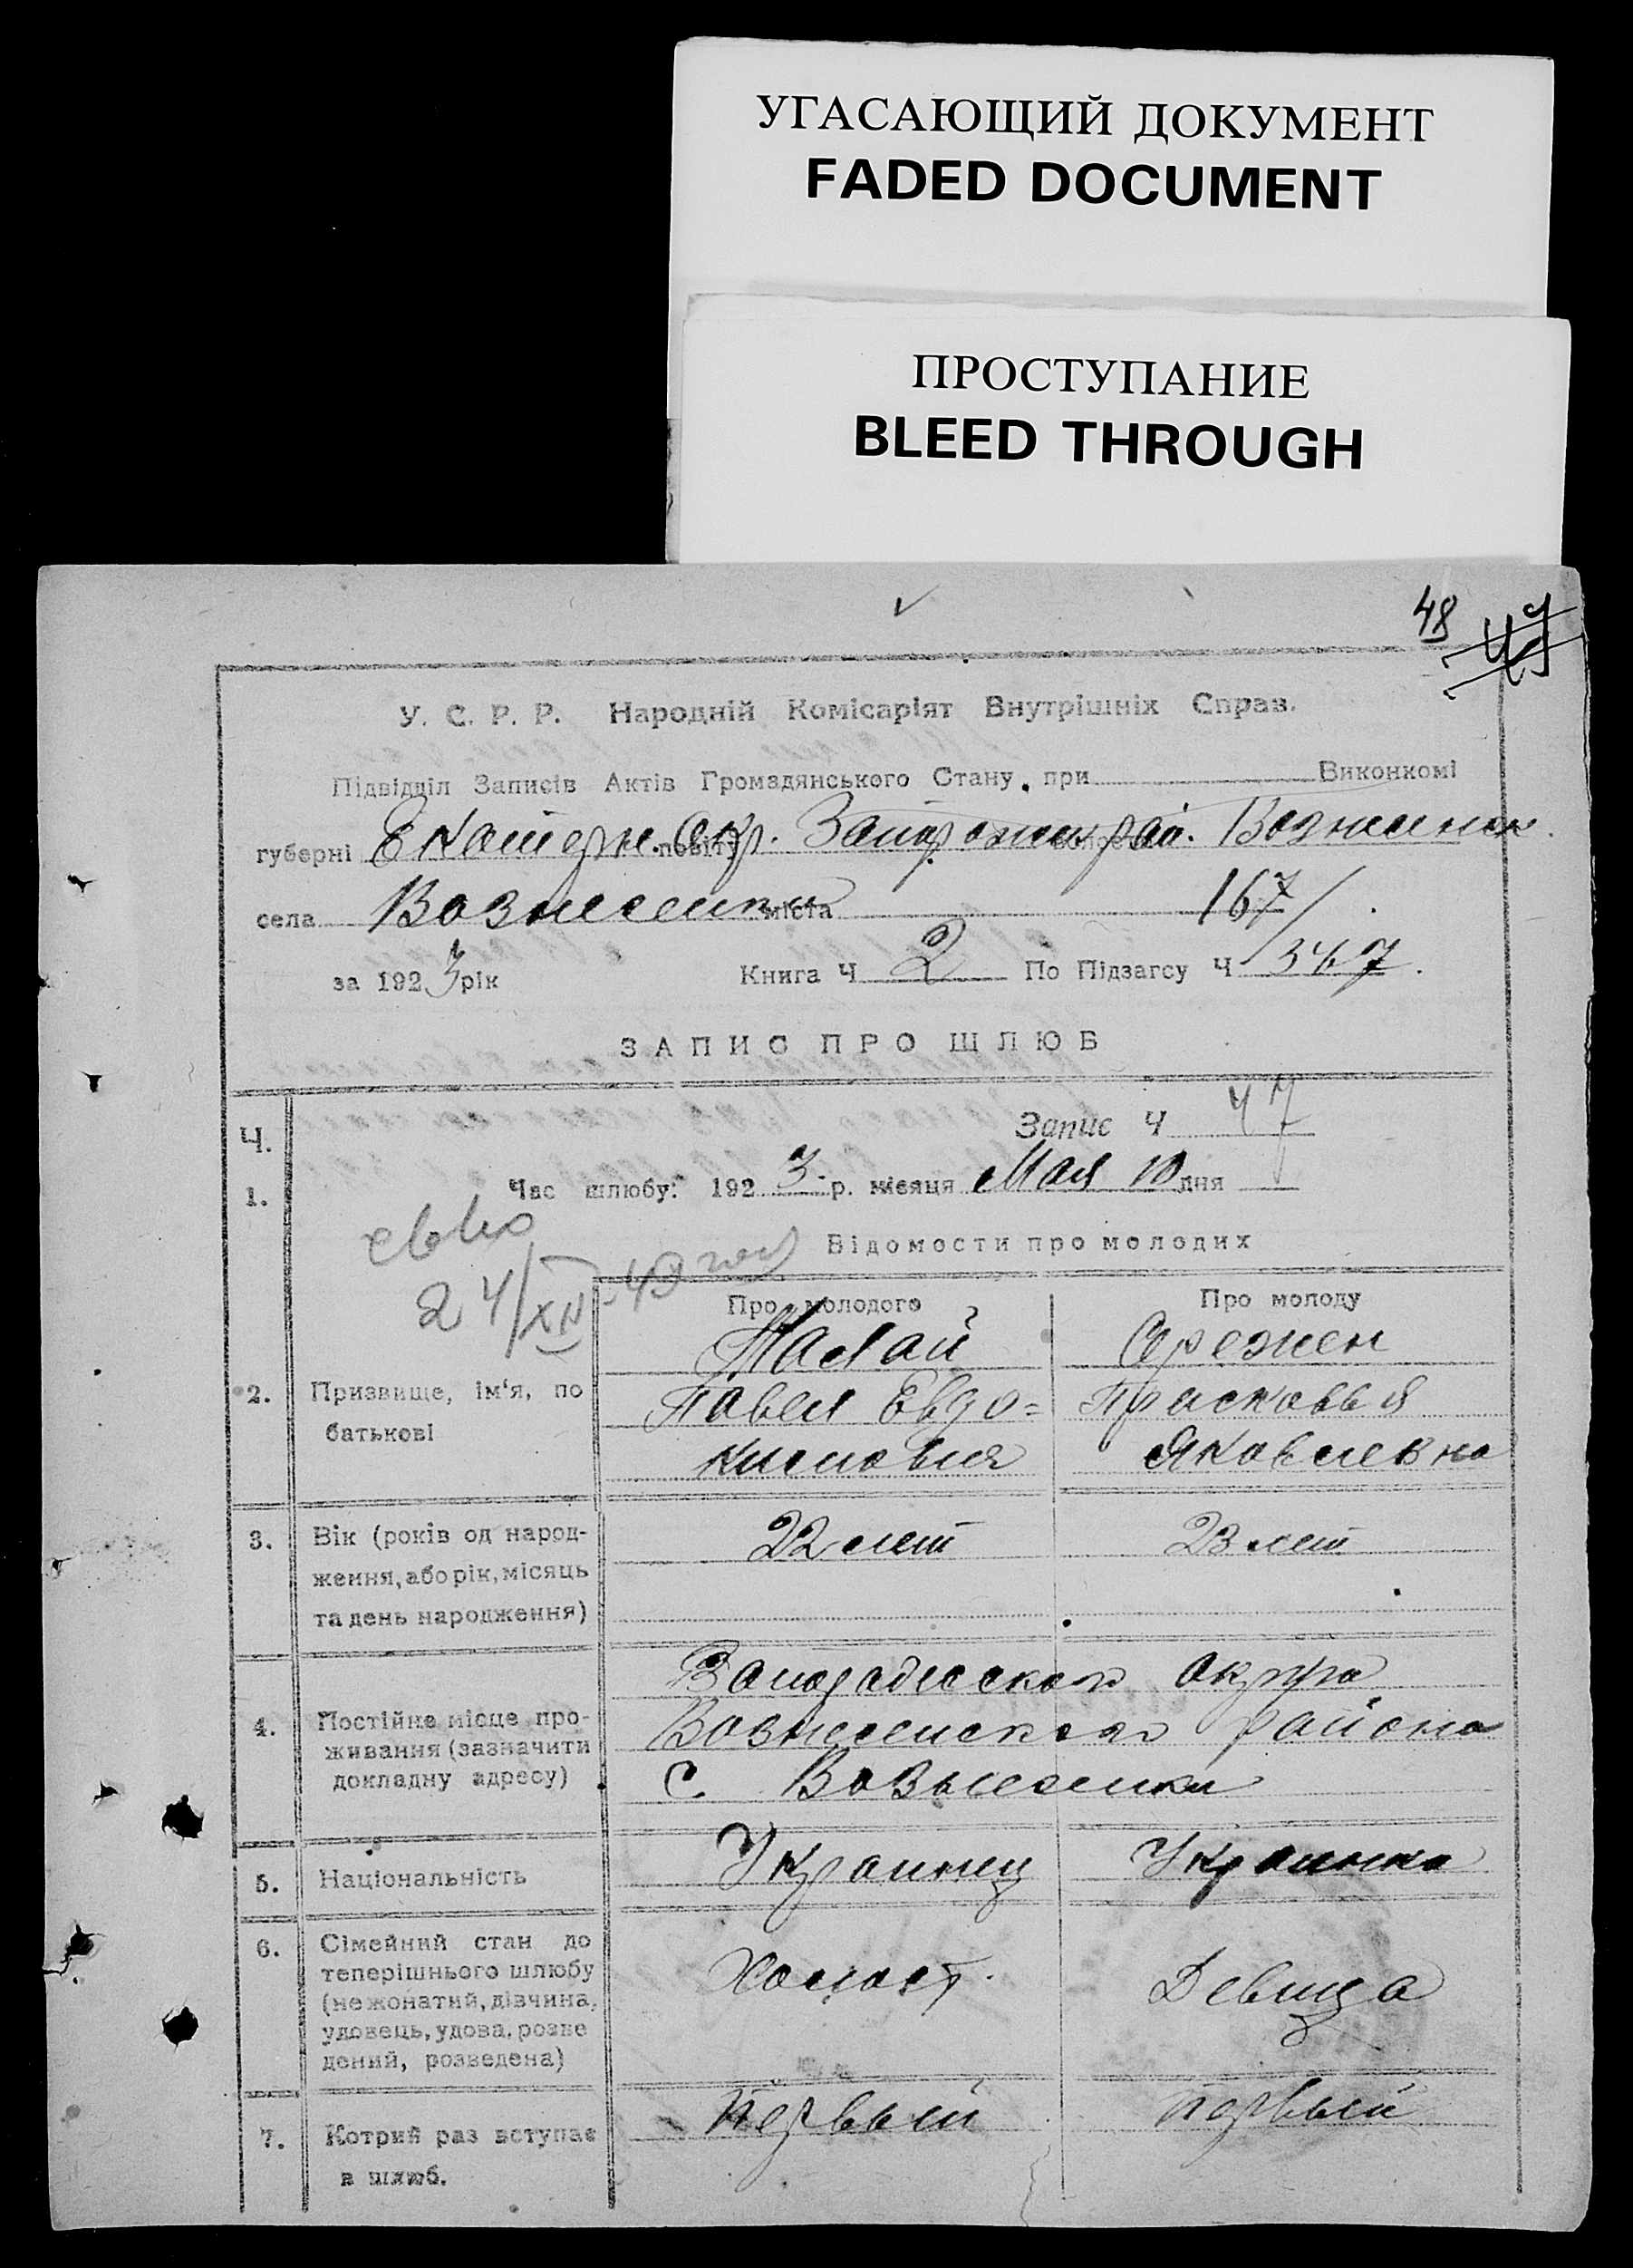 УГАСАЮЩИЙ ДОКУМЕНТ
FADED DOCUMENT
ПРОСТУПАНИЕ
BLEED THROUGH
48 47
У. С. Р. Р. Народній Комісаріят Внутрішніх Справ.
Підвідділ Записів Актів Громадянського Стану, при Виконкомі
губерні Екатерин. повіту Окр.
села Вознесенки міста 167/
за 1923 рік Книга Ч 2 По Підзагсу Ч 347.
ЗАПИС ПРО ШЛЮБ
Ч. Запис Ч 47
1. Час шлюбу: 1923 р. місяця Мая 10 дня
24/XII
Відомости про молодих
Про молодого Про молоду
Малай
2. Призвище, ім'я, по Павел Евдо= Прасковья
батькові кимович Яковлевна
3. Вік (років од народ- 22 лет 23 лет
ження, або рік, місяць
та день народження)
округа
4. Постійне місце про- Вознесенского района
живання (зазначити
докладну адресу) С. Вознесенки
5. Національність Украинец Украинка
6. Сімейний стан до
теперішнього шлюбу Холост. Девица
(нежонатий, дівчина,
удовець, удова, розве
дений, розведена)
7. Котрий раз вступає Первый первый
в шлюб.